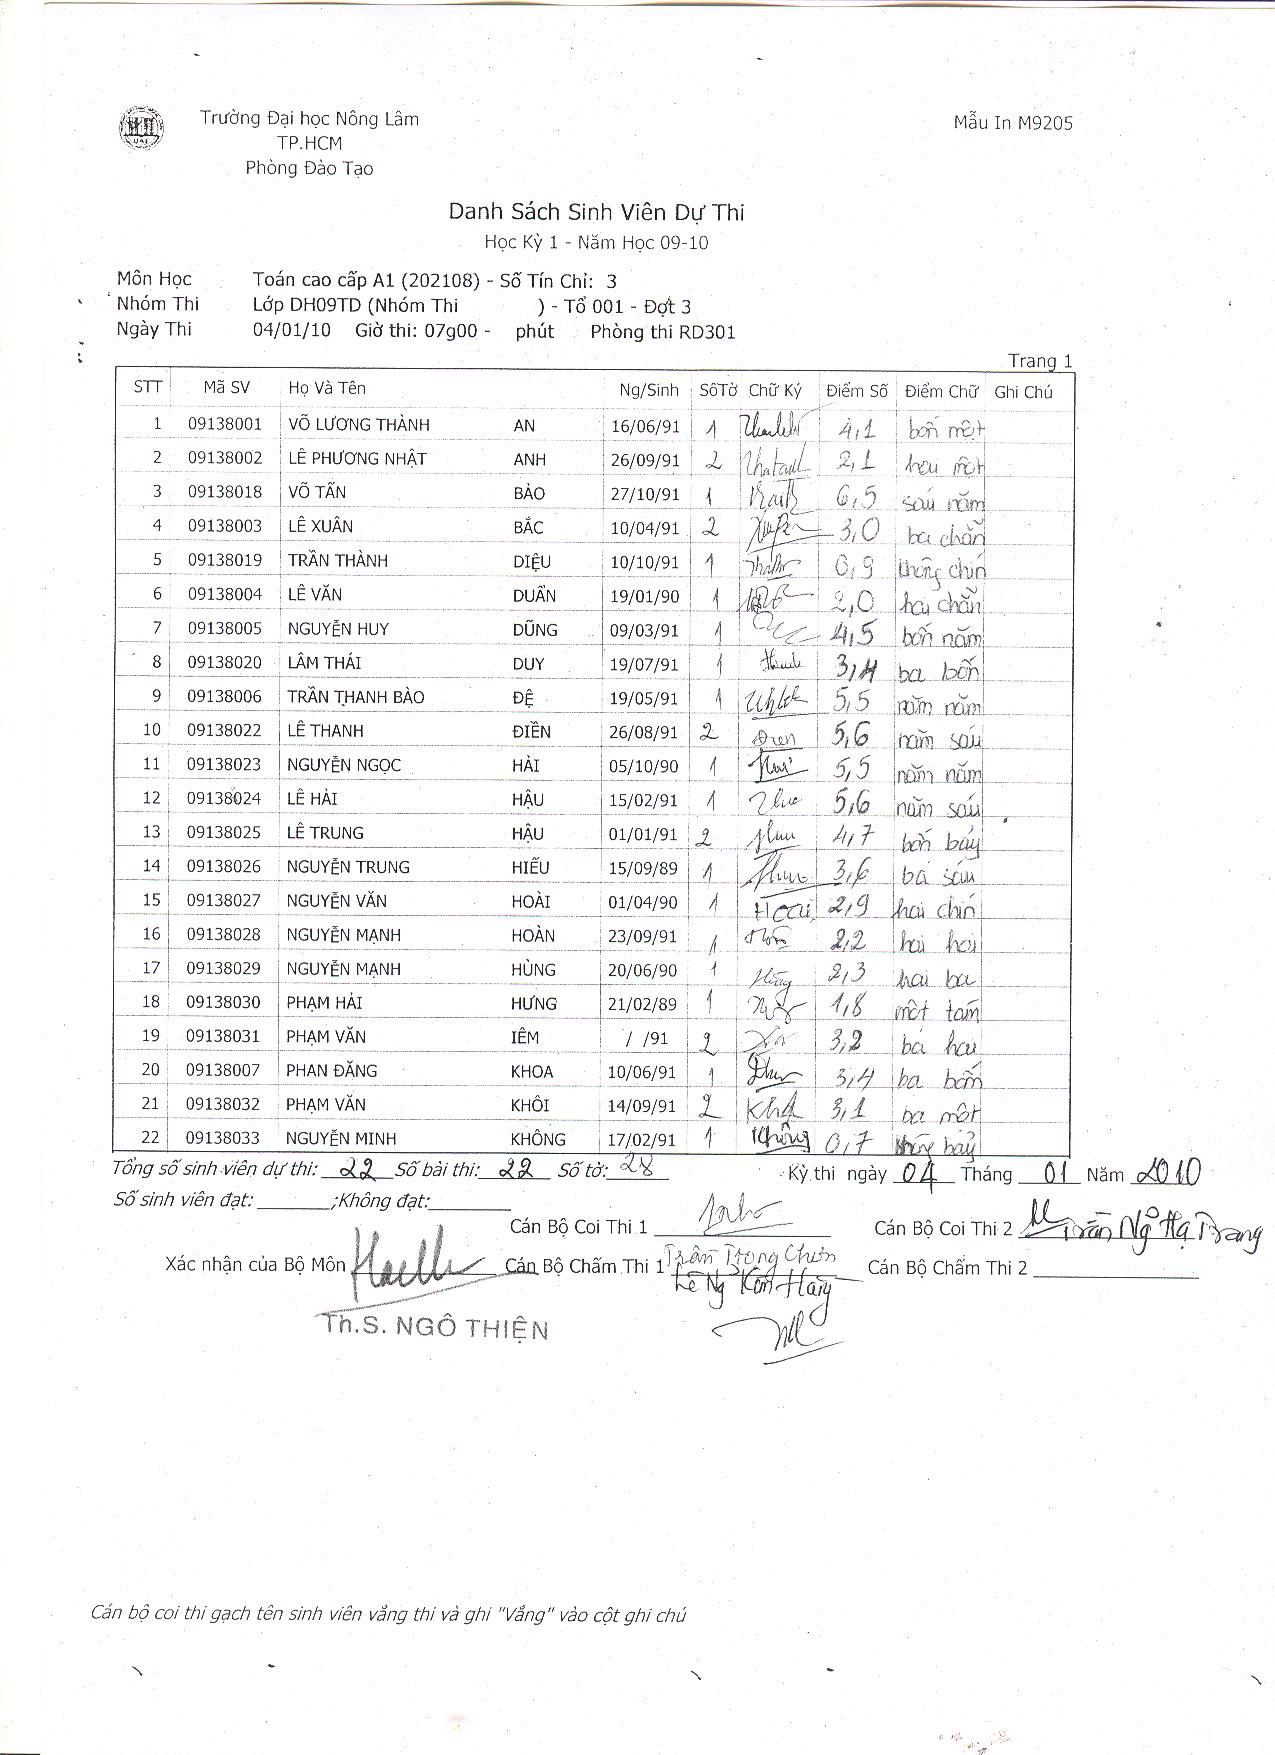 Trường Đại học Nông Lâm
TP.HCM
Phòng Đào Tạo
Mẫu In M9205
Danh Sách Sinh Viên Dự Thi
Học Kỳ 1 - Năm Học 09-10
Môn Học Toán cao cấp A1 (202108) - Số Tín Chỉ: 3
Nhóm Thi Lớp DH09TD (Nhóm Thi ) - Tổ 001 - Đợt 3
Ngày Thi 04/01/10 Giờ thi: 07g00 - phút Phòng thi RD301
Trang 1
STT Mã SV Họ Và Tên Ng/Sinh SốTờ Chữ Ký Điểm Số Điểm Chữ Ghi Chú
1 09138001 VÕ LƯƠNG THÀNH AN 16/06/91 1 4,1 bốn một
2 09138002 LÊ PHƯƠNG NHẬT ANH 26/09/91 2 2,1 hai một
3 09138018 VÕ TẤN BẢO 27/10/91 1 6,5 sáu năm
4 09138003 LÊ XUÂN BẮC 10/04/91 2 3,0 ba chẵn
5 09138019 TRẦN THÀNH DIỆU 10/10/91 1 0,9 không chín
6 09138004 LÊ VĂN DUẨN 19/01/90 1 2,0 hai chẵn
7 09138005 NGUYỄN HUY DŨNG 09/03/91 1 4,5 bốn năm
8 09138020 LÂM THÁI DUY 19/07/91 1 3,4 ba bốn
9 09138006 TRẦN THANH BẢO ĐỆ 19/05/91 1 5,5 năm năm
10 09138022 LÊ THANH ĐIỀN 26/08/91 2 5,6 năm sáu
11 09138023 NGUYỄN NGỌC HẢI 05/10/90 1 5,5 năm năm
12 09138024 LÊ HẢI HẬU 15/02/91 1 5,6 năm sáu
13 09138025 LÊ TRUNG HẬU 01/01/91 2 4,7 bốn bảy
14 09138026 NGUYỄN TRUNG HIẾU 15/09/89 1 3,6 ba sáu
15 09138027 NGUYỄN VĂN HOÀI 01/04/90 1 Hoai 2,9 hai chín
16 09138028 NGUYỄN MẠNH HOÀN 23/09/91 1 2,2 hai hai
17 09138029 NGUYỄN MẠNH HÙNG 20/06/90 1 Hùng 2,3 hai ba
18 09138030 PHẠM HẢI HƯNG 21/02/89 1 1,8 một tám
19 09138031 PHẠM VĂN IÊM / /91 2 3,2 ba hai
20 09138007 PHAN ĐĂNG KHOA 10/06/91 1 3,4 ba bốn
21 09138032 PHẠM VĂN KHÔI 14/09/91 2 3,1 ba một
22 09138033 NGUYỄN MINH KHÔNG 17/02/91 1 Không 0,7 không bảy
Tổng số sinh viên dự thi: 22 Số bài thi: 22 Số tờ: 28 Kỳ thi ngày 04 Tháng 01 Năm 2010
Số sinh viên đạt: ;Không đạt:
Cán Bộ Coi Thi 1 Cán Bộ Coi Thi 2 Trần Ng Hạ Trang
Xác nhận của Bộ Môn Cán Bộ Chấm Thi 1 Trần Trọng Cán Bộ Chấm Thi 2
Lê Ng Kim Hằng
Th.S. NGÔ THIỆN
Cán bộ coi thi gạch tên sinh viên vắng thi và ghi "Vắng" vào cột ghi chú